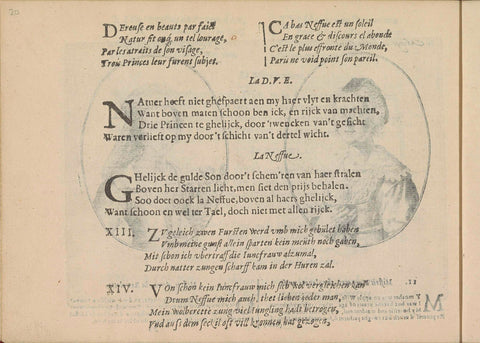 20
Dereuse en beauté par faict
Natur fit onq, un tel lourage,
Par les atraits de son visage,
Troix Princes leur furent subjet.
Ca bas Neffue est un soleil
En grace & discours el abonde
C'est le plus effronte du Monde,
Paris ne void point son pareil.
La D. V. E.
Natuer heeft niet ghespaert aen my haer vlyt en krachten
Want boven maten schoon ben ick, en rijck van machten,
Drie Princen te ghelijck, door 'twencken van't gesicht
Waren verlieft op my door't schicht van't dertel wicht.
La Neffue.
Ghelijck de gulde Son door't schem'ren van haer stralen
Boven her Starren licht, men siet den prijs behalen.
Soo doet oock la Neffue, boven al haers ghelijck,
Want schoon en wel ter Tael, doch niet met allen rijck.
XIII. Zugleich zween Fursten werd umb mich gebület haben
Umb meine gunst allein sparten kein meuth noch gaben,
Mit schon ich ubertraff die Iuncfrauw alzumal,
Durch natter zungen scharff kam in der Huren zal.
XIV. Von schon kein Iuncfrauw mich sich hat vergleichen kan
Drum Neffue mich auch, thet lieben jeder man,
Mein wolberette zung viel Iungling hadt betrogen,
Und aus dem seckel oft vill krannen hat gezogen,